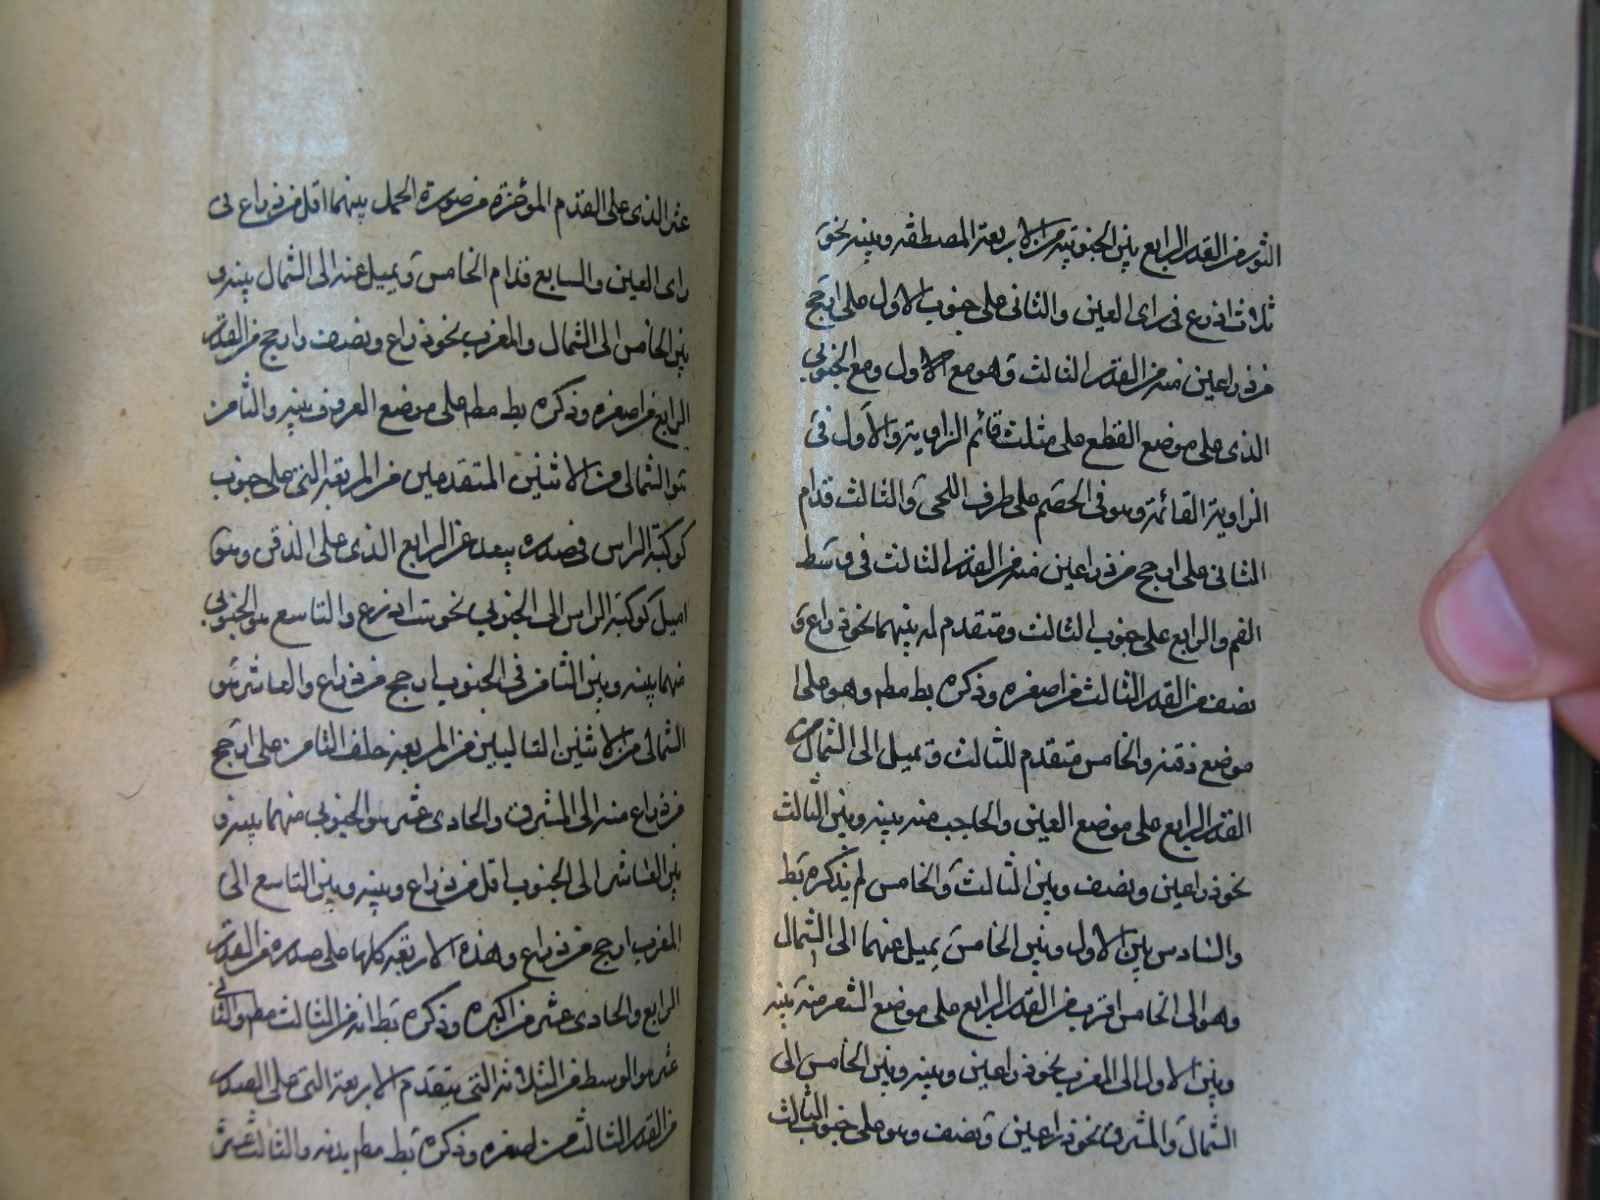 الثور من القدر الرابع بين الجنوبية من الاربعة المصطفة وبينه نحو
ثلاث اذرع فى راى العين والثانى على جنوب الاول على ارجح
من ذراعين منه من القدر الثالث وهو مع الاول ومع الجنوبى
الذى على موضع القطع على مثلث قائم الزاوية والاول فى
الزاوية القائمة وهو فى الخطم على طرف اللحى والثالث قدام
الثانى على ارجح من ذراعين منه من القدر الثالث فى وسط
الفم والرابع على جنوب الثالث ومتقدم له بينهما نحو ذراع و
نصف من القدر الثالث من اصغره وذكره بط مط وهو على
موضع ذقنه والخامس متقدم للثالث ويميل الى الشمال من
القدر الرابع على موضع العين والحاجب منه بينه وبين الثالث
نحو ذراعين ونصف وبين الثالث والخامس لم يذكره بط
والسادس بين الاول وبين الخامس يميل عنهما الى الشمال
وهو الى الخامس اقرب من القدر الرابع على موضع الشعر منه بينه
وبين الاول الى المغرب نحو ذراعين وبينه وبين الخامس الى
الشمال والمشرق نحو ذراعين ونصف وهو على جنوب الثالث
عشر الذى على القدم المؤخرة من صورة الحمل بينهما اقل من ذراع فى
راى العين والسابع قدام الخامس ويميل عنه الى الشمال بينه و
بين الخامس الى الشمال والمغرب نحو ذراع ونصف وارجح من القدر
الرابع من اصغره وذكره بط مط على موضع العرف بينه والثامن
هو الشمالى من الاثنين المتقدمين من المربعة التى على جنوب
كوكبة الراس فى صدره يبعد عن الرابع الذى على الذقن وهو
اميل كوكبة الراس الى الجنوب نحو ست اذرع والتاسع هو الجنوبى
منهما بينه وبين الثامن فى الجنوب ارجح من ذراع والعاشر هو
الشمالى من الاثنين التاليين من المربعة خلف الثامن على ارجح
من ذراع منه الى المشرق والحادى عشر هو الجنوبى منهما بينه و
بين العاشر الى الجنوب اقل من ذراع وبينه وبين التاسع الى
المغرب ارجح من ذراع وهذه الاربعة كلها على صدره من القدر
الرابع والحادى عشر من اكبره وذكره بط انه من الثالث مط والثانى
عشر هو الوسط من الثلاثة التى يتقدم الاربعة التى على الصدر
من القدر الثالث من اصغره وذكره بط مط والثالث عشر